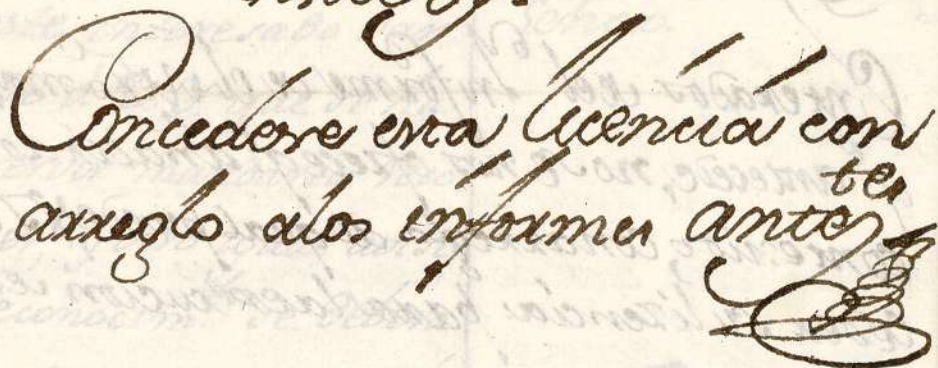 Concedese esta licencia con
arreglo alos informes antes
tes